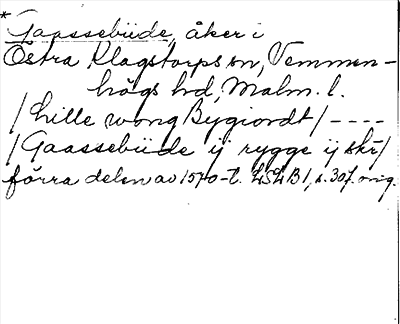 * Gaassebüde, åker i
Östra Klagstorps sn, Vemmen-
högs hd, Malm. l.
/Lille wong Bygiordt/----
/Gaassebüde ij rygge ij skr/
förra delen av 1570-t. LSLB 1, s. 307. orig.